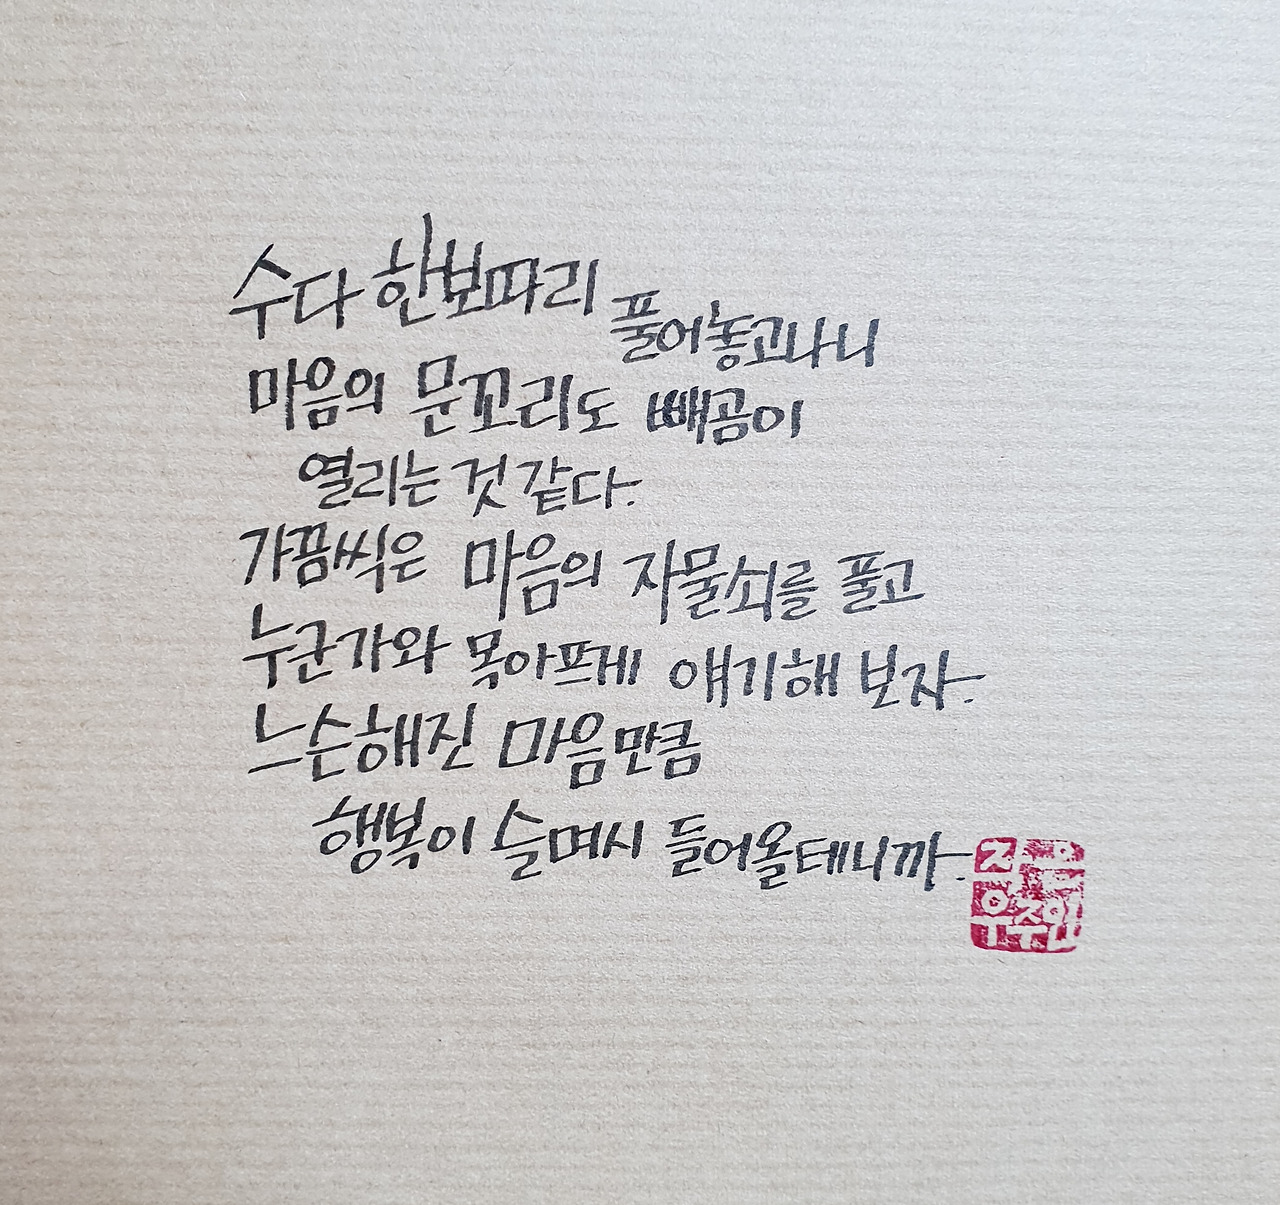 수다 한보따리 풀어놓고나니
마음의 문꼬리도 빼곰이
열리는 것 같다.
가끔씩은 마음의 자물쇠를 풀고
누군가와 목아프게 얘기해 보자.
느슨해진 마음만큼
행복이 슬며시 들어올테니까.
우주인